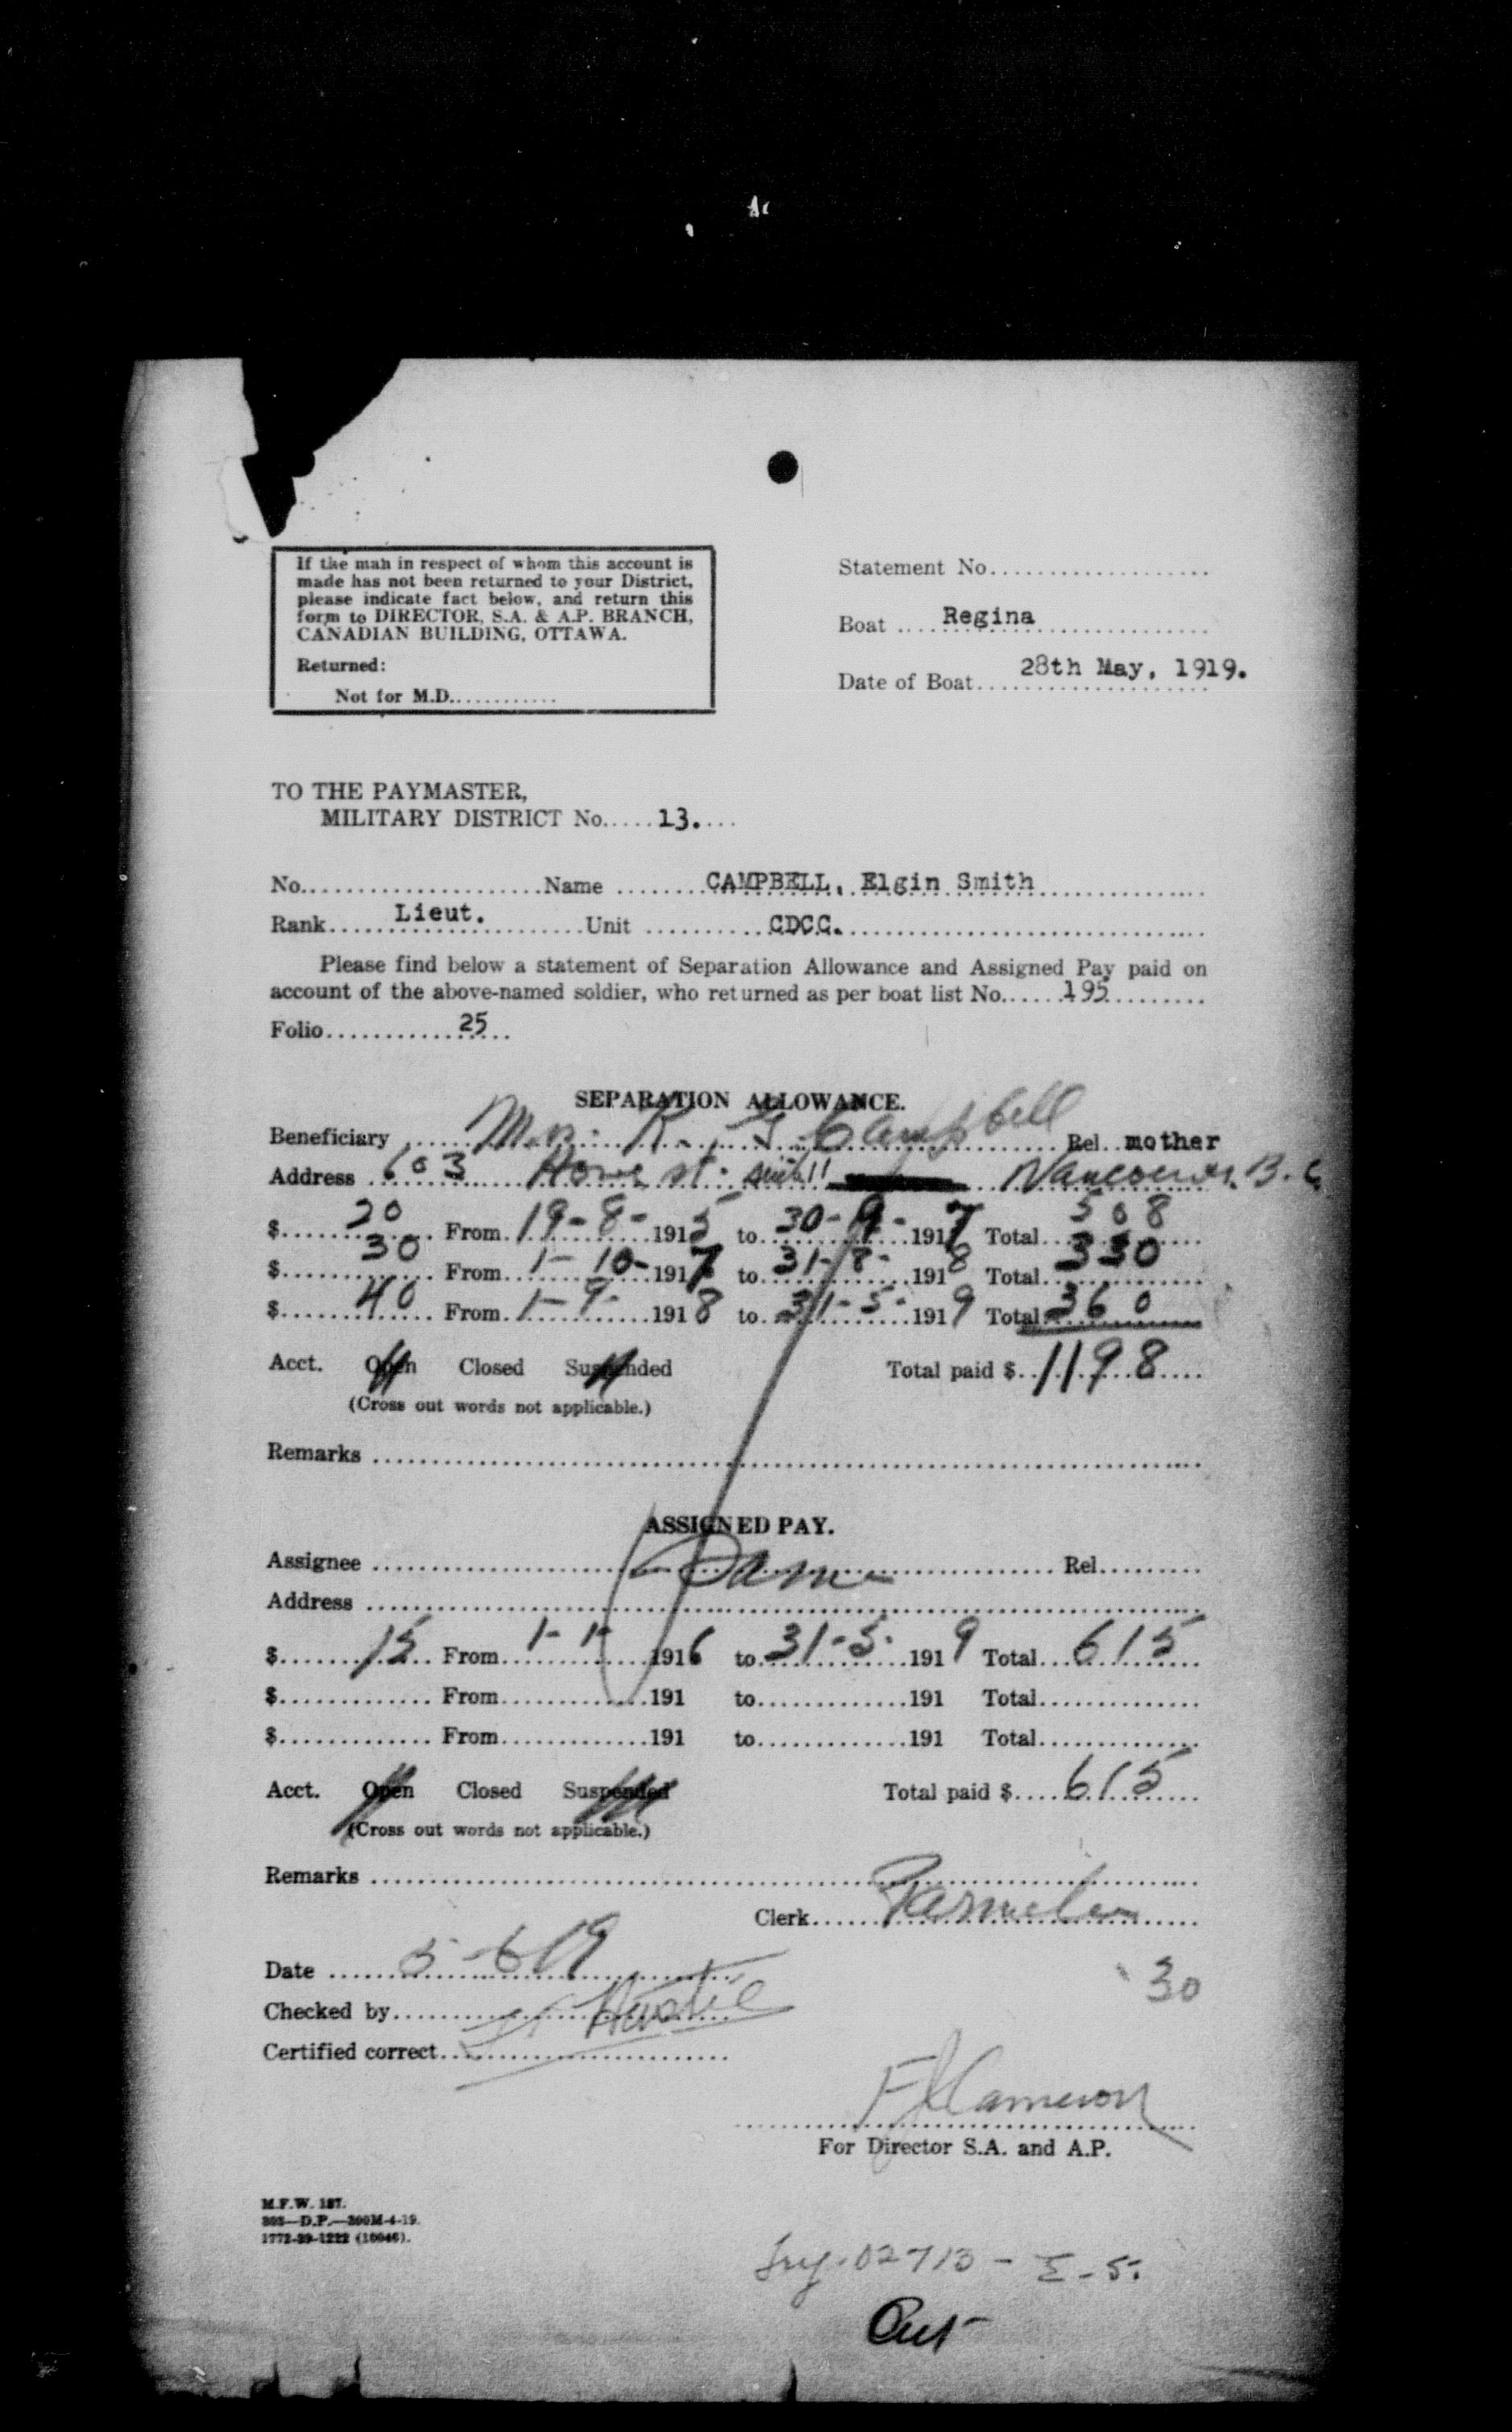 If the man in respect of whom this account is
made has not been returned to your District,
please indicate fact below, and return this
form to DIRECTOR, S.A. & A.P. BRANCH,
CANADIAN BUILDING, OTTAWA.
Returned:
Not for M.D.............
Statement No....................
Boat .... Regina
Date of Boat.... 28th May, 1919.
TO THE PAYMASTER,
MILITARY DISTRICT No.....13....
No.......................Name ........CAMPBELL, Elgin Smith
Rank.... Lieut. ....Unit ..........CDCC.
Please find below a statement of Separation Allowance and Assigned Pay paid on
account of the above-named soldier, who returned as per boat list No......195.........
Folio............25...
SEPARATION ALLOWANCE.
Beneficiary Mrs. K. G. Campbell Rel. mother
Address 603 Howe st. Vancouver. B.C
$ 20 From 19-8-1915 to 30-9-1917 Total 508
$ 30 From 1-10-1917 to 31-8-1918 Total 330
$ 40 From 1-9-1918 to 31-5-1919 Total 360
Acct. Open Closed Suspended Total paid $ 1198
(Cross out words not applicable.)
Remarks
ASSIGNED PAY.
Assignee Same Rel.
Address
$ 15 From 1-1-1916 to 31-5-1919 Total 615
$ From 191 to 191 Total
$ From 191 to 191 Total
Acct. Open Closed Suspended Total paid $ 615
(Cross out words not applicable.)
Remarks
Clerk Parmelee
Date 5-6-19
30
Checked by
Certified correct
F Cameron
For Director S.A. and A.P.
M.F.W. 187.
1772-39-1222
02713 - E-5.
Out